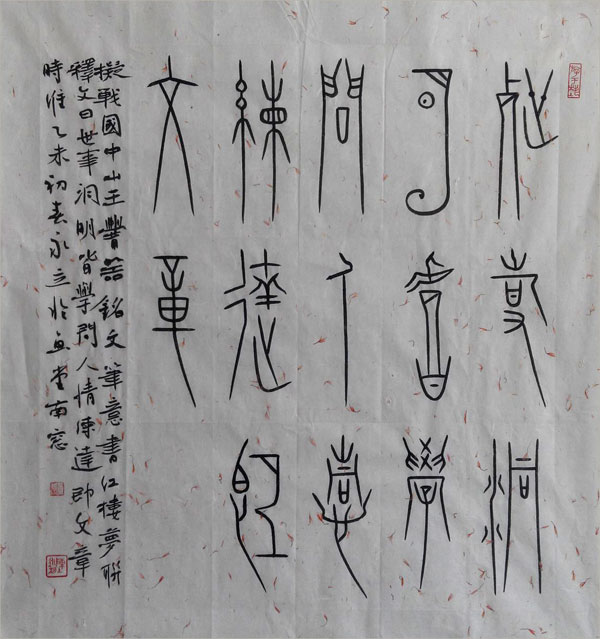 世事洞
明皆學
問人情
練達即
文章
擬戰國中山王器銘文筆意書红樓夢聯
釋文曰世事洞明皆學問人情練達即文章
時惟乙未初春永立於堂南窓